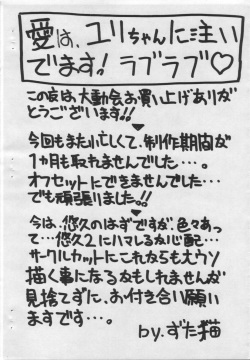 愛は、ユリちゃんに注い
でます! ラブラブ♡
この度は、大動会お買い上げありが
とうございます!!
▼
今回もまた忙しくて、制作期間が
1か月も取れませんでした…。
オフセットにできませんでした…
でも頑張りました。!!
▼
今は、悠久のはずですが、色々あっ
て…悠久2にハマレるか心配…
サークルカットにこれからも大ウソ
描く事になるかもしれませんが
見捨てずに、お付き合い願い
ますです…。
by.ずた猫